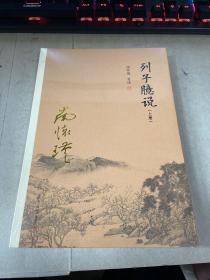 列子臆说
(上册)
南怀瑾 著述
南怀瑾